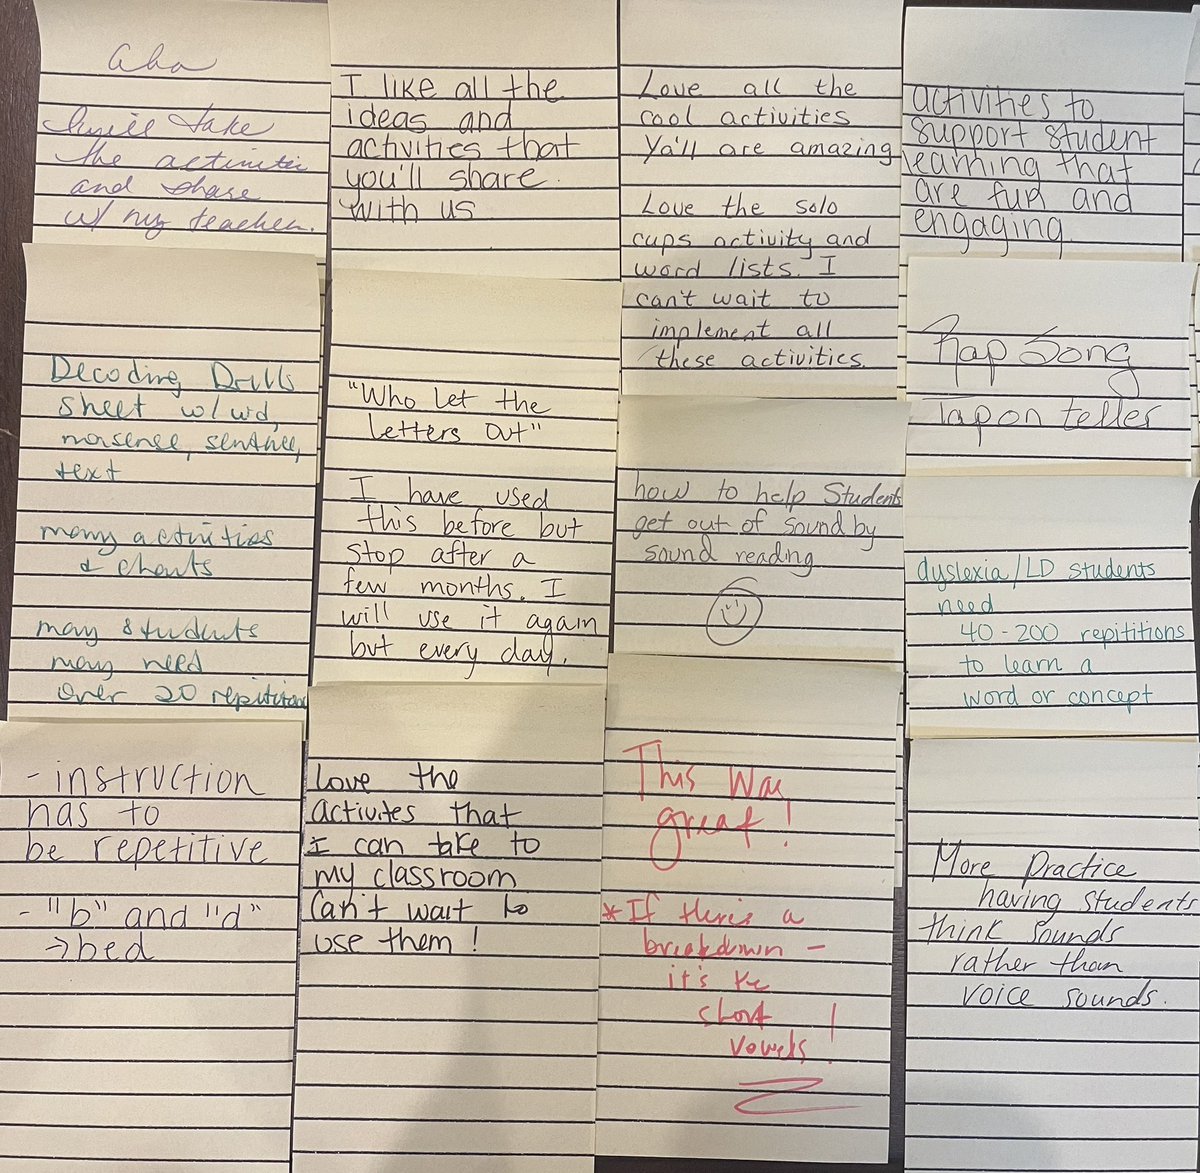 aha
I will take
the activitie
and share
w/ my teacher.
I like all the
ideas and
activities that
you'll share.
with us
Love all the
cool activities
Ya'll are amazing
Love the solo
cups activity and
word lists. I
can't wait to
implement all
these activities.
activities to
support student
learning that
are fun and
engaging.
Decoding Drills
sheet w/ wd,
nonsense, sentence,
text
many activities
& charts
many students
may need
over 20 repitition
"Who let the
letters out"
I have used
this before but
stop after a
few months. I
will use it again
but every day.
how to help Students
get out of sound by
sound reading
Rap Song
Tap on teller
dyslexia/LD students
need
40-200 repititions
to learn a
word or concept
- instruction
has to
be repetitive
- "b" and "d"
→ bed
Love the
activites that
I can take to
my classroom
Can't wait to
use them!
This was
great!
* If there's a
breakdown -
it's the
short
vowels!
More Practice
having students
think sounds
rather than
voice sounds.